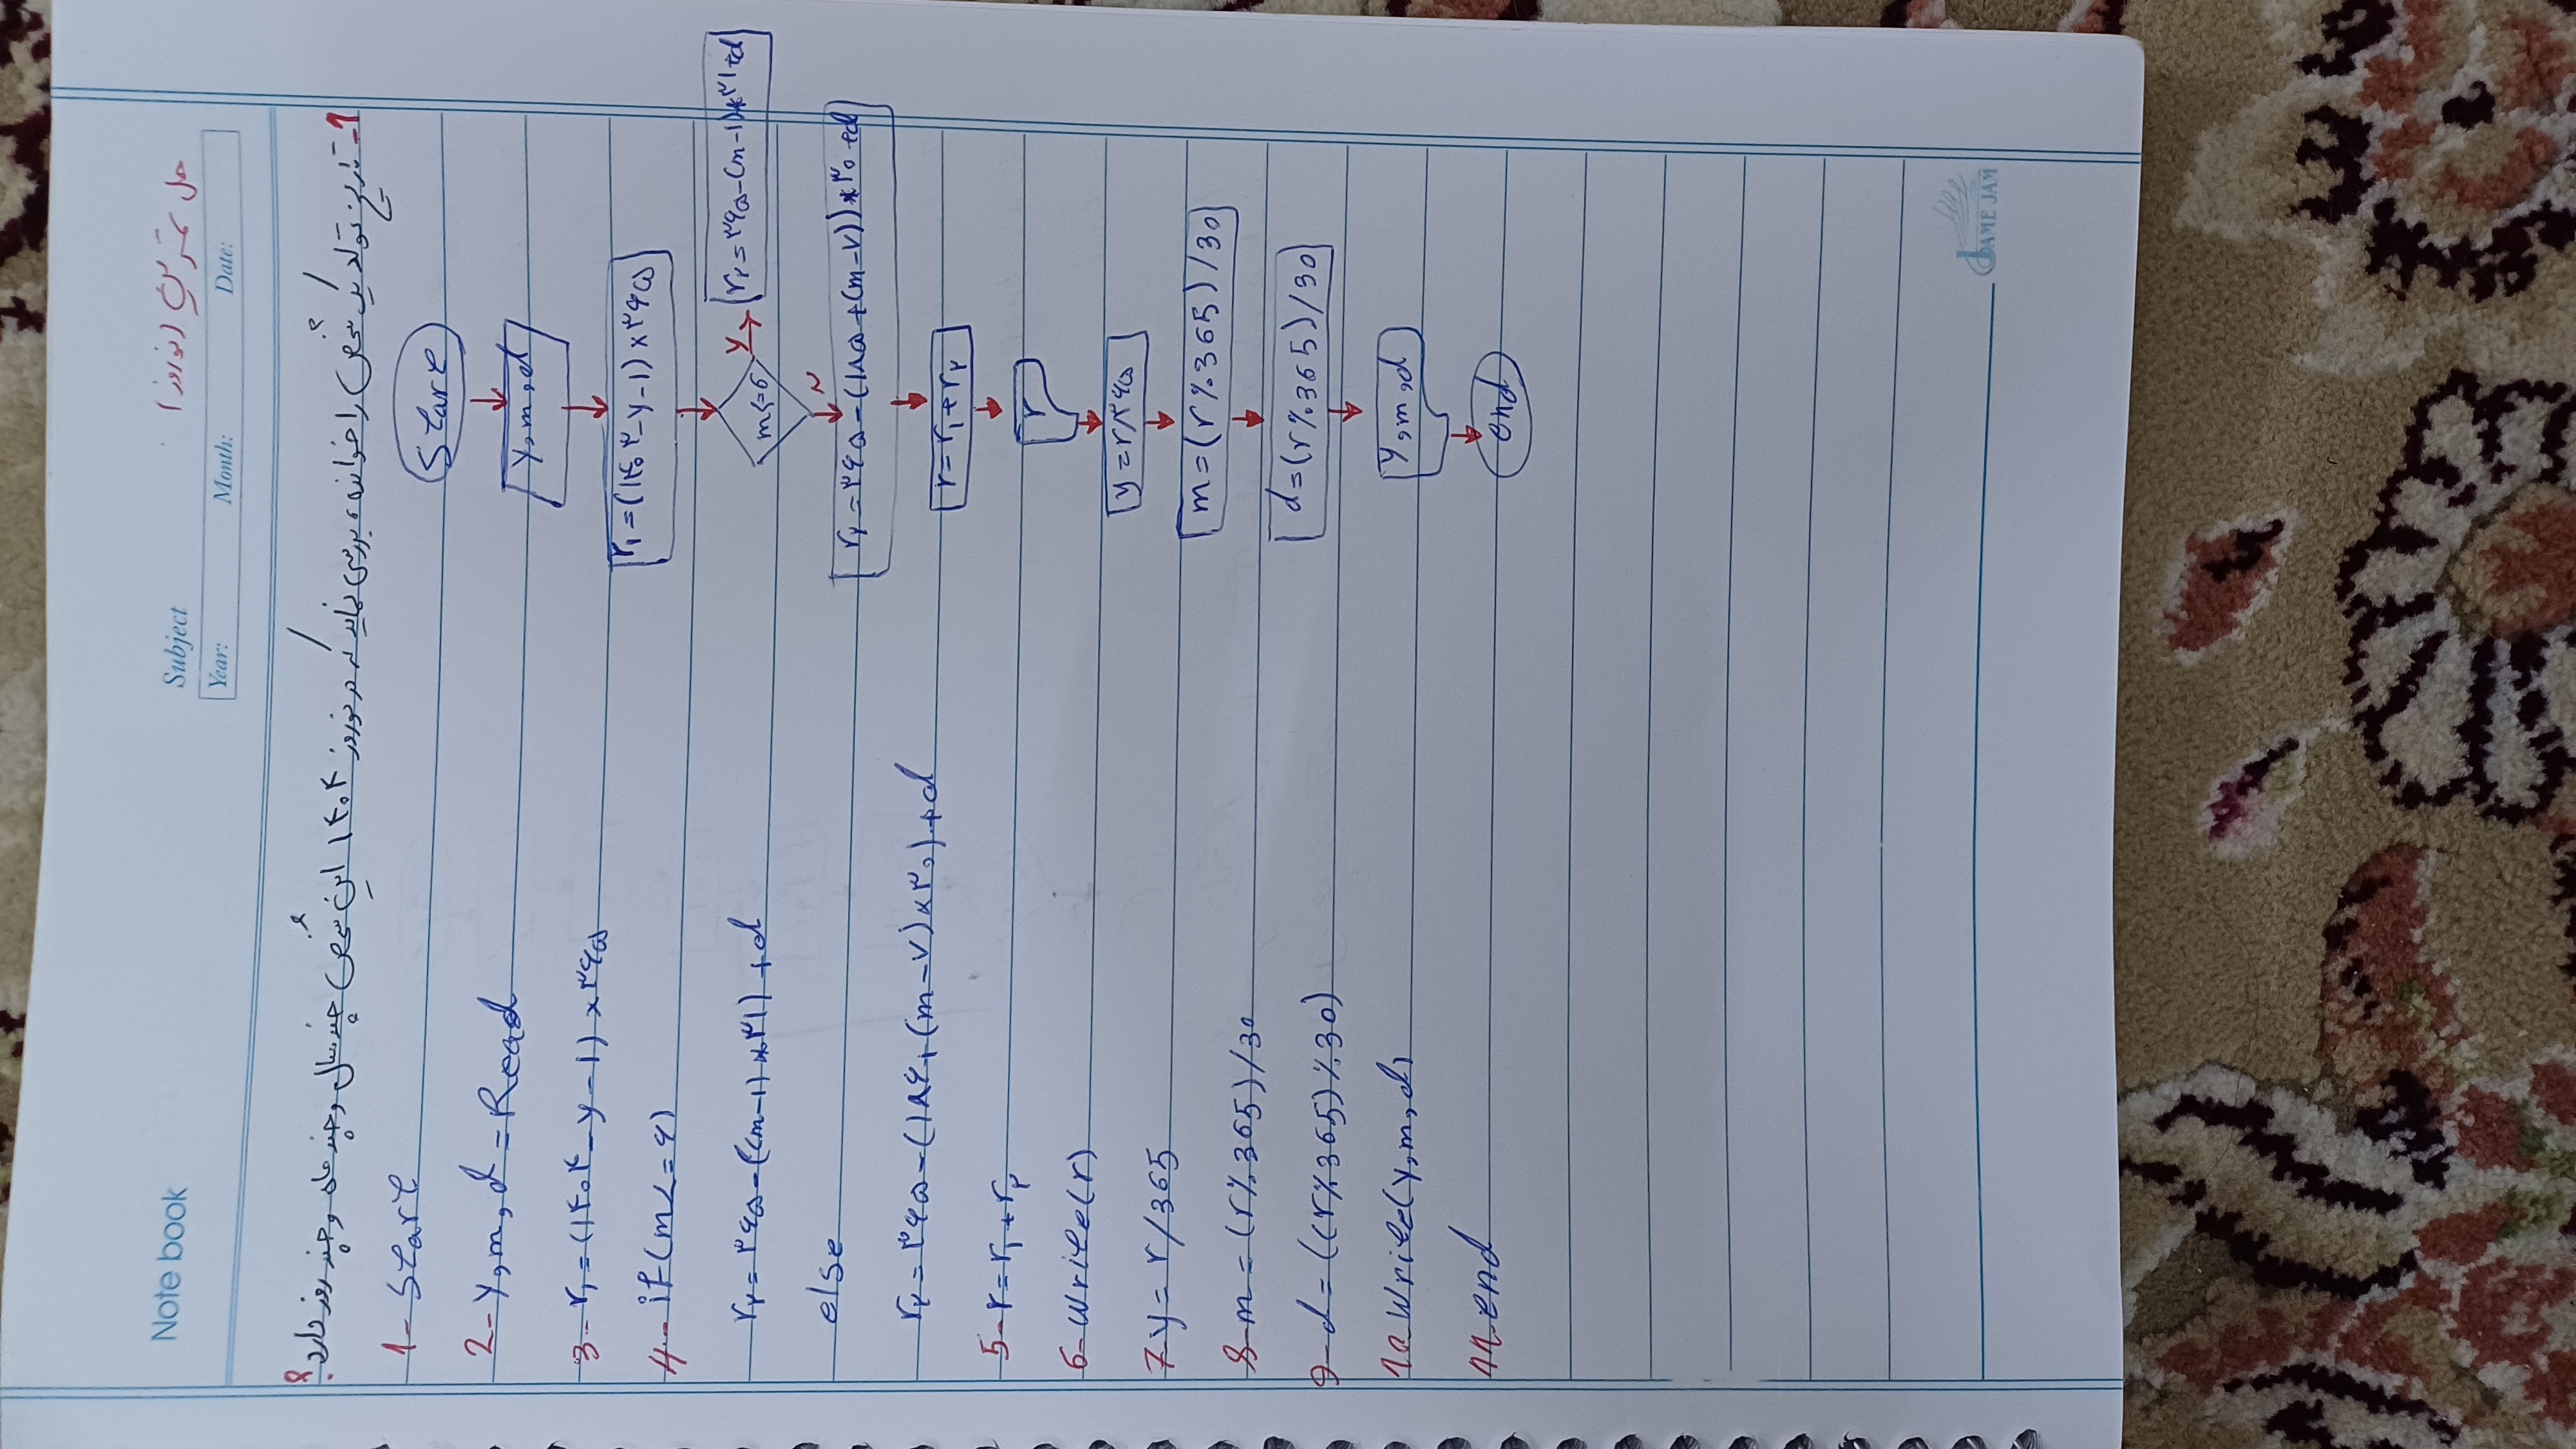 Note book
Subject
حل تمرین (نوروز)
Year: Month: Date:
1- تاریخ تولد یک شخص را خوانده، بررسی نماید که در نوروز ۱۴۰۴ این شخص چند سال و چند ماه و چند روز دارد؟
1- Start
2- y,m,d = Read
3- r₁ = (۱۴۰۴ - y - ۱) × ۳۶۵
4- if(m<=۶)
r₂ = ۳۶۵ - ((m-۱) * ۳۱) + d
else
r₂ = ۳۶۵ - (۱۸۶ + (m-۷) × ۳۰) + d
5- r = r₁ + r₂
6- write(r)
7 y = r/365
8- m = (r%365)/30
9- d = ((r%365)%30)
10 Write(y,m,d)
11- end
Start
y,m,d
r₁ = (۱۴۰۳ - y - ۱) × ۳۶۵
m<=6
y
r₂ = ۳۶۵ - (m-۱) * ۳۱ + d
N
r₂ = ۳۶۵ - (۱۸۵ + (m-۷)) * ۳۰ + d
r = r₁ + r₂
r
y = r/۳۶۵
m = (r%365)/30
d = (r%365)/30
y,m,d
end
DAME JAM